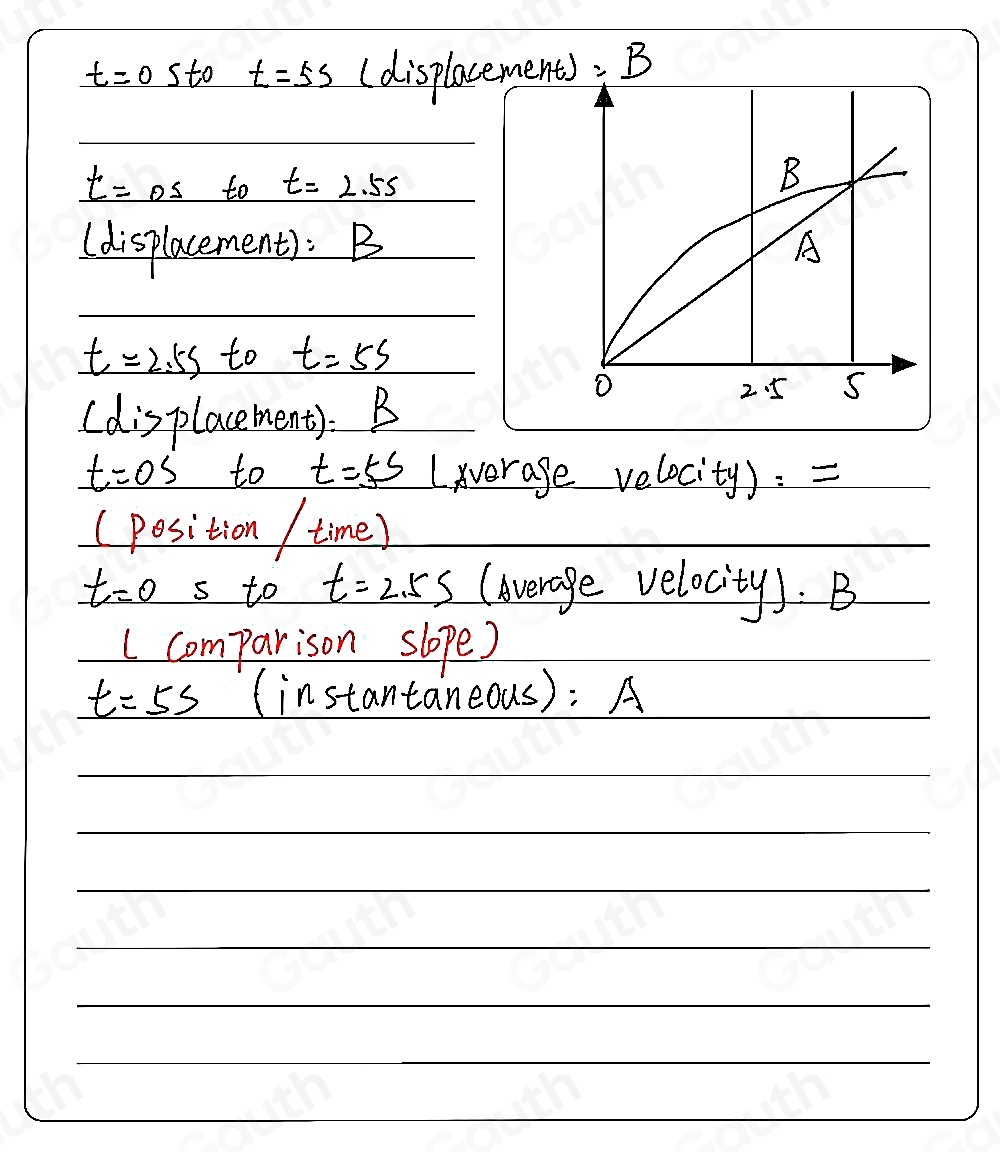 t=0 s to t=5s (displacement): B
t=0s to t=2.5s
(displacement): B
B
A
t=2.5s to t=5s
(displacement): B
0 2.5 5
t=0s to t=5s (Average velocity): =
(Position/time)
t=0 s to t=2.5s (Average velocity): B
(Comparison slope)
t=5s (instantaneous): A
Gauth